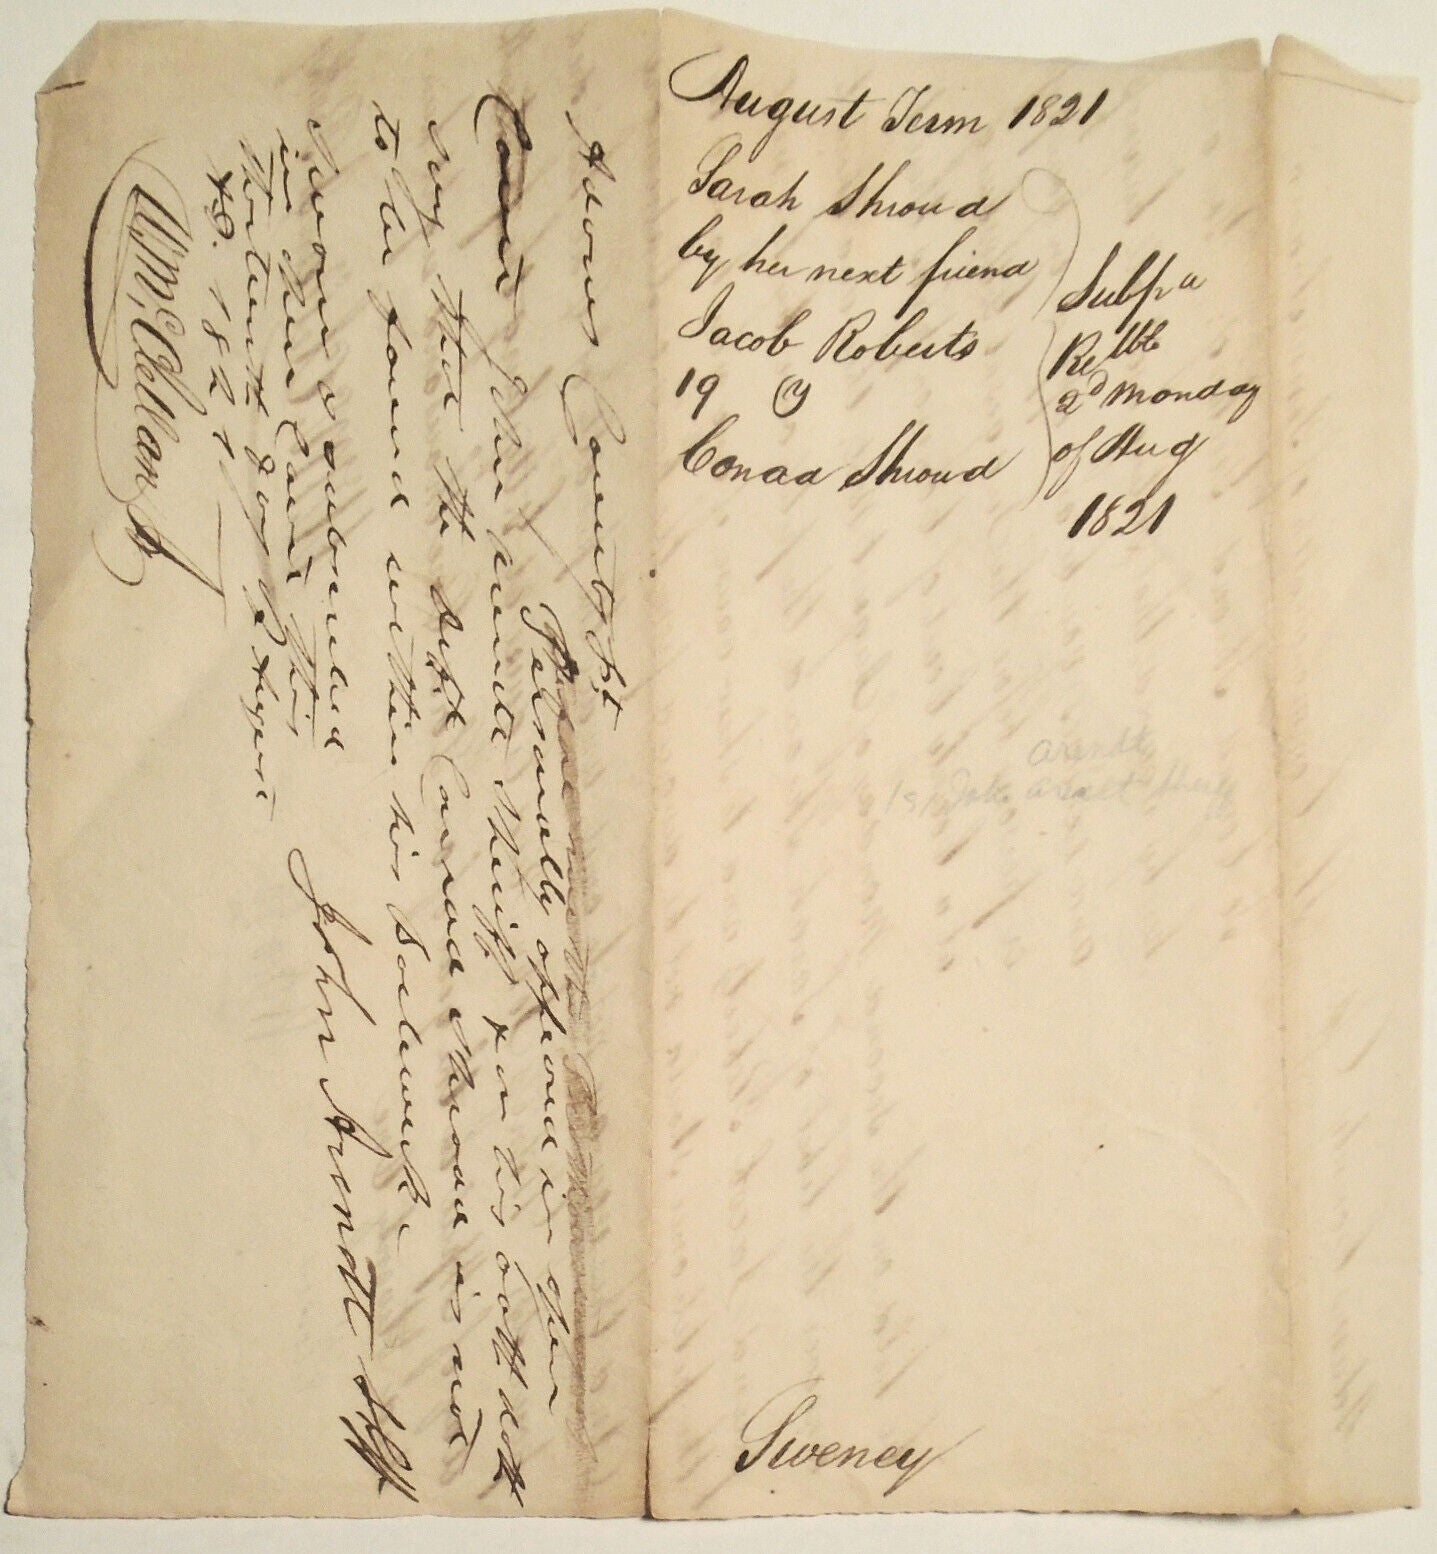 August Term 1821
Sarah Shroud
by her next friend
Jacob Roberts
19 Y
Conrad Shroud
Subpa
Retble
2d Monday
of Aug
1821
Arendt
John Arendt Sheriff
Sweney
Adams County Sst
Personally appeared in open
Court John Arendt Sheriff & on his oath doth
say that the deft Conrad Shroud is not
to be found within his bailiwick
Sworn & subscribed
in open Court this
thirteenth day of August
AD. 1821
John Arendt Shff
Wm McClellan Jr